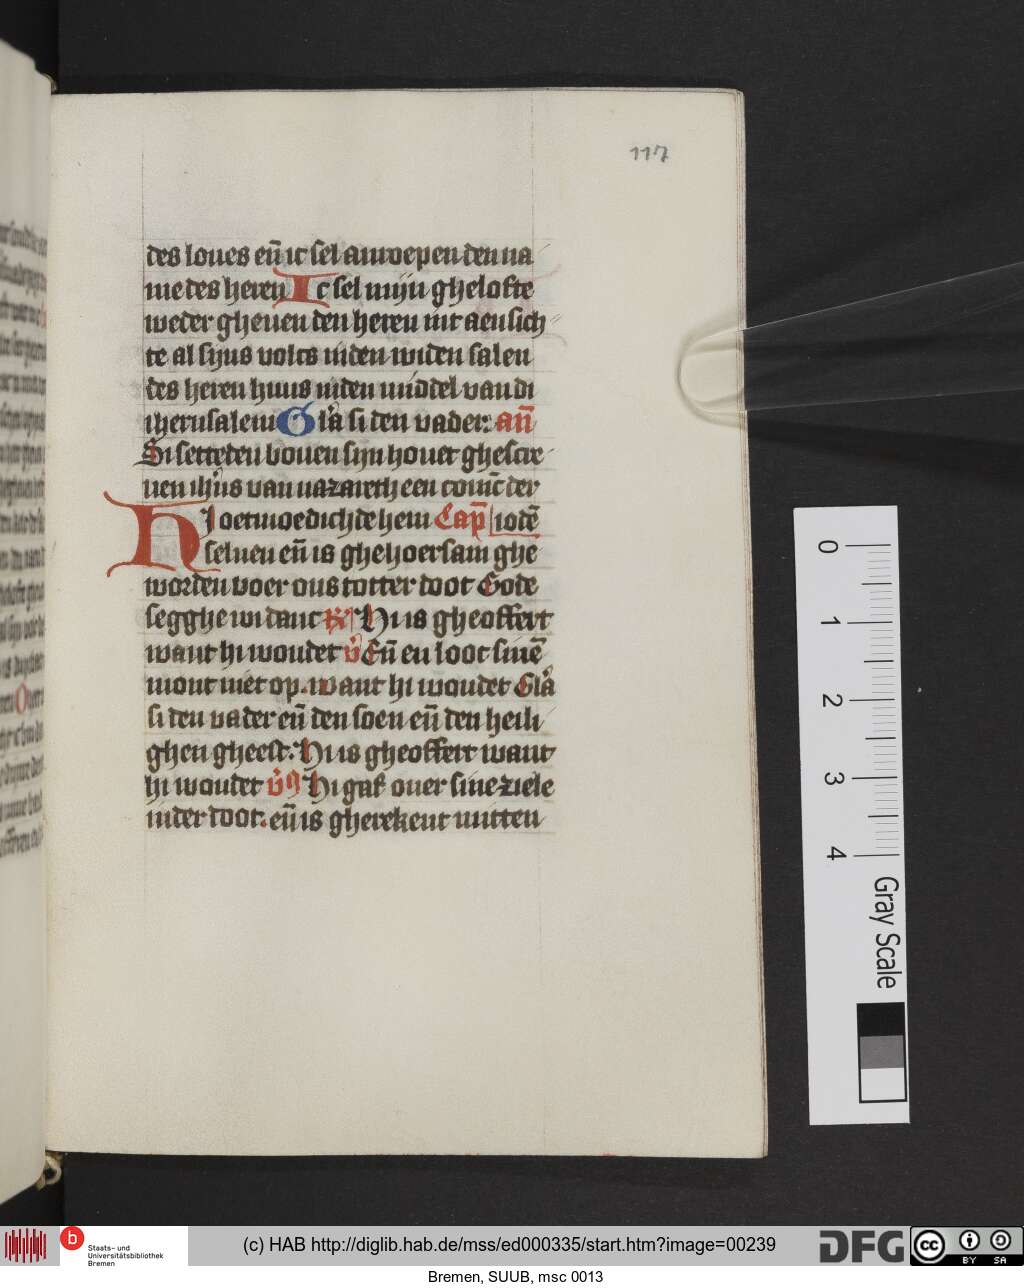 117
des loues eñ ic sel anroepen den na
me des heren Ic sel mijn ghelofte
weder gheuen den heren int aensich
te al sijns volcs inden widen salen
des heren huus inden middel van di
iherusalem Gl'a si den vader: an̄
Si setteden bouen sijn houet ghescre
uen ih'us van nazareth een coninc der
Hi oetmoedichde hem Cap̄ ioden
seluen eñ is ghehoersam ghe
worden voer ons totter doot Gode
segghe wi danc R' Hi is gheoffert
want hi woudet v̄ Eñ en loot sinē
mont niet op. want hi woudet Gl'a
si den vader eñ den soen eñ den heili
ghen gheest. Hi is gheoffert want
hi woudet v̄s Hi gaf ouer sine ziele
inder doot. eñ is gherekent mitten
0
1
2
3
4
Gray Scale
b
Staats- und
Universitätsbibliothek
Bremen
(c) HAB http://diglib.hab.de/mss/ed000335/start.htm?image=00239
DFG
cc
BY
SA
Bremen, SUUB, msc 0013